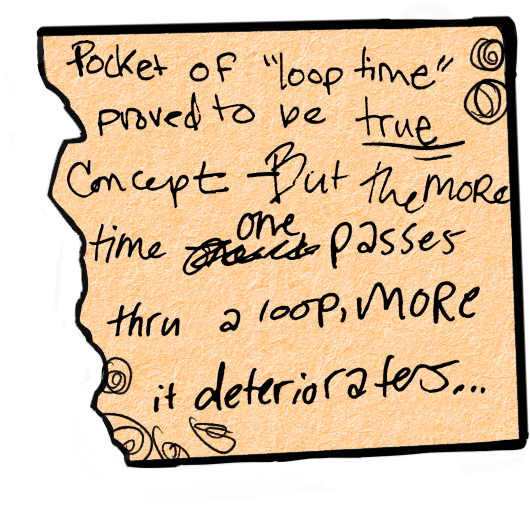 Pocket of "loop time"
proved to be true
Concept - But the MORE
time one passes
thru a loop, MORE
it deteriorates...